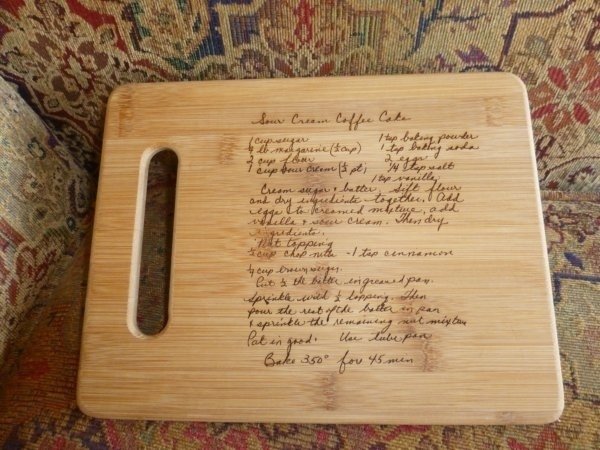 Sour Cream Coffee Cake
1 cup sugar 1 tsp baking powder
¼ lb margarine (½ cup) 1 tsp baking soda
2 cup flour 2 eggs
1 cup sour cream (½ pt) ¼ tsp salt
1 tsp vanilla
Cream sugar & butter, Sift flour
and dry ingredients together. Add
eggs to creamed mixture, add
vanilla & sour cream. Then dry
ingredients.
Nut topping
cup chop nuts - 1 tsp cinnamon
¼ cup brown sugar.
Put ½ the batter in greased pan.
Sprinkle with ½ topping. Then
pour the rest of the batter in pan
& sprinkle the remaining nut mixture
Pat in good. Use tube pan
Bake 350° for 45 min